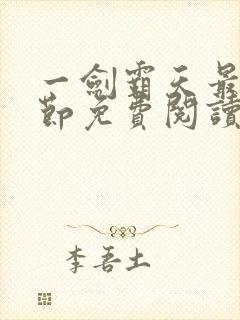 一劍霸天最
節免費閱讀
李吾土